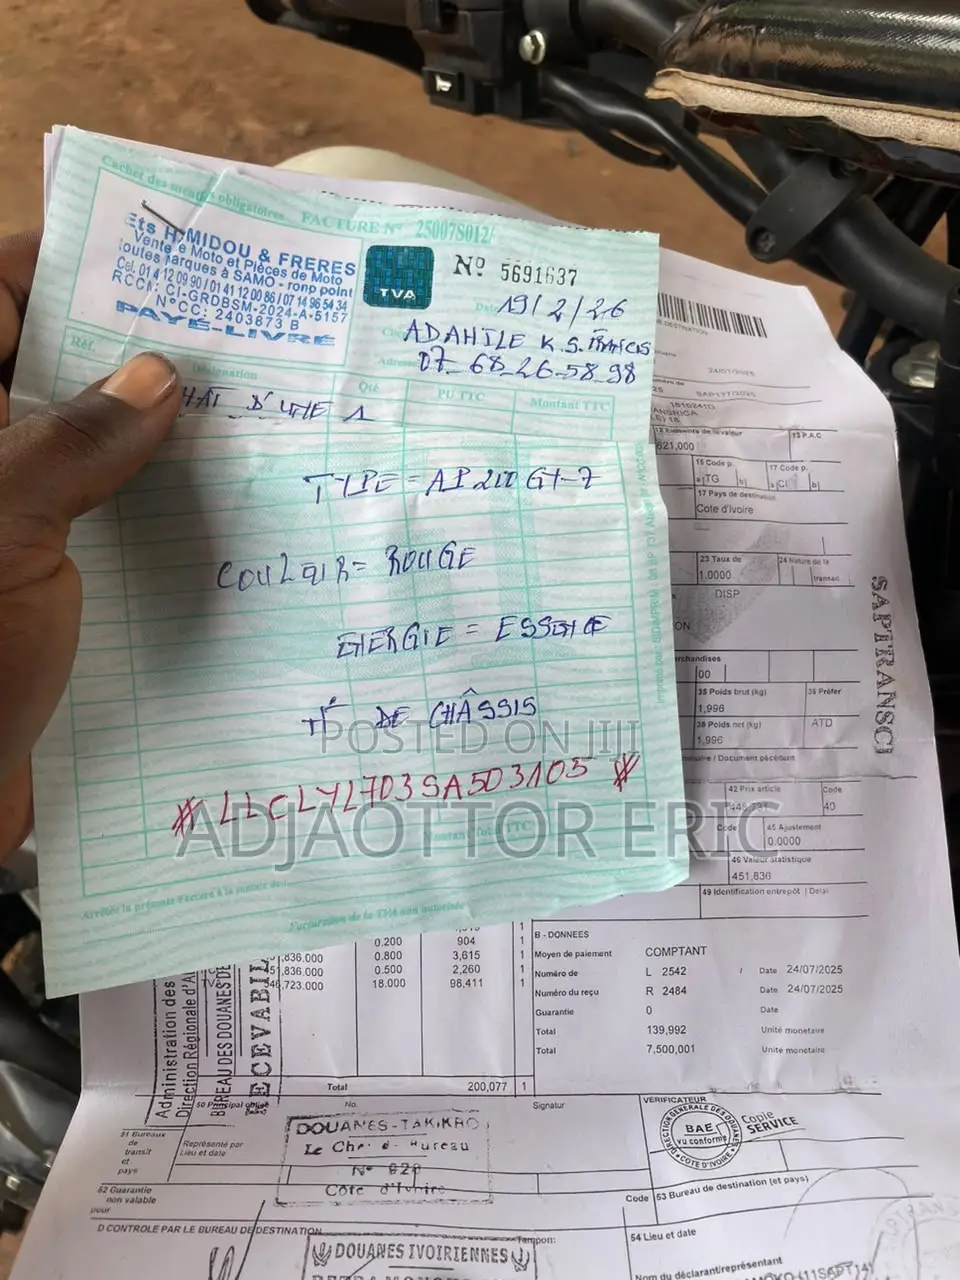 Cachet des mentions obligatoires
FACTURE N° 25007S012/
Ets H MIDOU & FRERES
Vente e Moto et Pièces de Moto
toutes Marques à SAMO - ronp point
Cel. 01 4 12 09 90 / 01 41 12 00 86 / 07 14 96 54 34
RCCM: CI-GRDBSM-2024-A-5157
N°CC: 2403873 B
PAYÉ-LIVRÉ
TVA
N° 5691637
Date 19/2/26
ADAHILE K.S. FRANCIS
Adresse 07_68_26-58_98
Réf.
Désignation
Qté
PU TTC
Montant TTC
HAT D'UNE 1
TYPE = AP 200 GY-7
COULEUR = ROUGE
ENERGIE = ESSENCE
N° DE CHÂSSIS
* LLCLYL703SA503105 *
POSTED ON JIJI
ADJAOTTOR ERIC
Montant Total TTC
Arrêtée la présente Facture à la somme de :
Facturation de la TVA non autorisée
DESTINATION
24/07/2025
SAP177/2025
1610241D
621,000
15 P.A.C
15 Code p.
17 Code p.
a TG b
a CI b
17 Pays de destination
Cote d'Ivoire
23 Taux de
24 Nature de la
1.0000
transac
DISP
ON
SAPTRANSCI
rchandises
00
35 Poids brut (kg)
36 Préfer
1,996
38 Poids net (kg)
ATD
1,996
/ Document précédent
42 Prix article
Code
40
Code
45 Ajustement
0.0000
46 Valeur statistique
451,836
49 Identification entrepôt | Délai
0.200 904 1
,836.000 0.800 3,615 1
51,836.000 0.500 2,260 1
TV 46,723.000 18.000 98,411 1
Total 200,077 1
B - DONNEES
Moyen de paiement COMPTANT
Numéro de L 2542 / Date 24/07/2025
Numéro du reçu R 2484 Date 24/07/2025
Guarantie 0 Date
Total 139,992 Unité monetaire
Total 7,500,001 Unité monetaire
Administration des
Direction Régionale d'A
BUREAU DES DOUANES DE
RECEVABIL
50 Principal obligé
No.
Signatur
VERIFICATEUR
DIRECTION GENERALE DES DOUANES
BAE
vu conforme
COTE D'IVOIRE
Copie
SERVICE
DOUANES-TAKIKRO
Le Chef de Bureau
N° 828
Côte d'Ivoire
51 Bureaux
de
transit
et
pays
Représenté par
Lieu et date
52 Guarantie
non valable
pour
Code
53 Bureau de destination (et pays)
D CONTROLE PAR LE BUREAU DE DESTINATION
Tampon:
54 Lieu et date
DOUANES IVOIRIENNES
Nom du déclarant/représentant